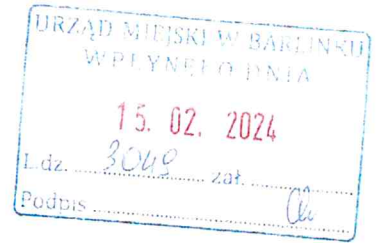 URZĄD MIEJSKI W BARLINKU
WPŁYNĘŁO DNIA
15. 02. 2024
L.dz. 3049 zał.
Podpis